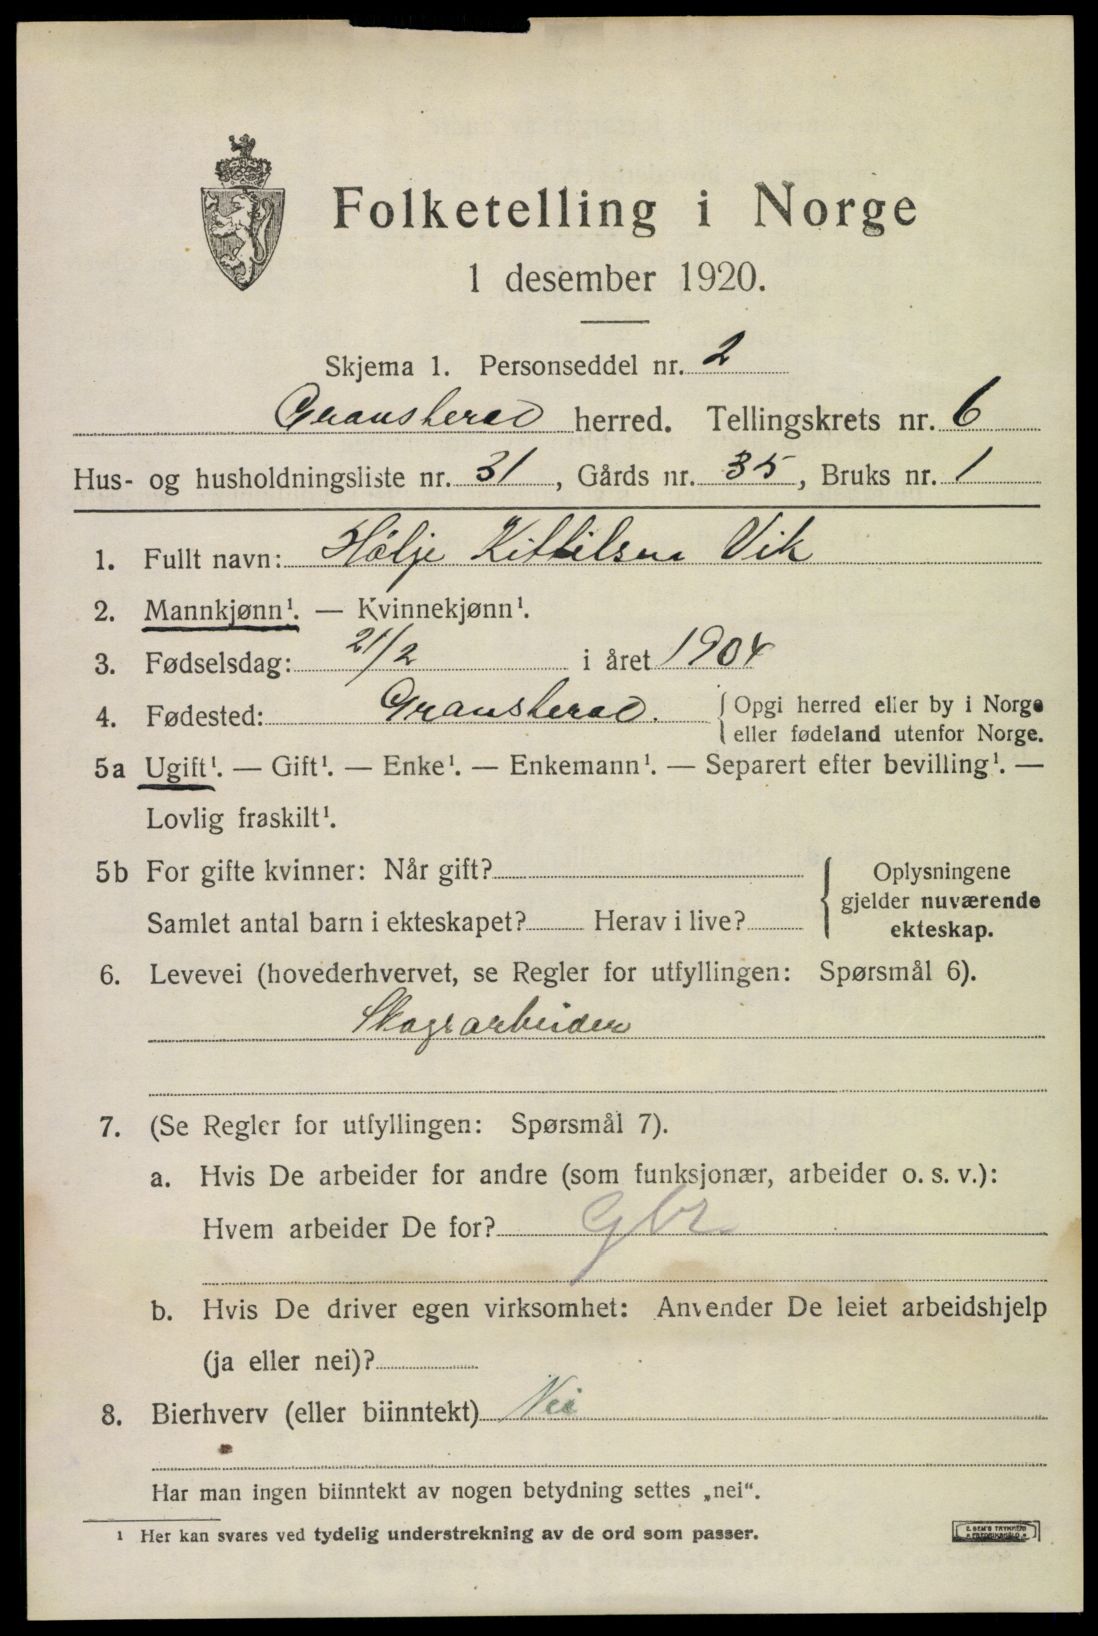 Folketelling i Norge
1 desember 1920.
Skjema 1. Personseddel nr. 2
Gransherad herred. Tellingskrets nr. 6
Hus- og husholdningsliste nr. 31, Gårds nr. 35, Bruks nr. 1
1. Fullt navn: Hölje Kittilsen Vik
2. Mannkjønn¹. — Kvinnekjønn¹.
3. Fødselsdag: 21/2 i året 1904
4. Fødested: Gransherad. { Opgi herred eller by i Norge
eller fødeland utenfor Norge.
5a Ugift¹. — Gift¹. — Enke¹. — Enkemann¹. — Separert efter bevilling¹. —
Lovlig fraskilt¹.
5b For gifte kvinner: Når gift?
Samlet antal barn i ekteskapet? Herav i live?
{ Oplysningene
gjelder nuværende
ekteskap.
6. Levevei (hovederhvervet, se Regler for utfyllingen: Spørsmål 6).
Skogsarbeider
7. (Se Regler for utfyllingen: Spørsmål 7).
a. Hvis De arbeider for andre (som funksjonær, arbeider o. s. v.):
Hvem arbeider De for? Gbr
b. Hvis De driver egen virksomhet: Anvender De leiet arbeidshjelp
(ja eller nei)?
8. Bierhverv (eller biinntekt) Nei
Har man ingen biinntekt av nogen betydning settes „nei“.
¹ Her kan svares ved tydelig understrekning av de ord som passer.